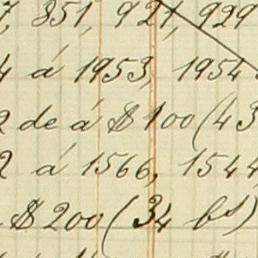 7, 851, 921, 929
4 á 1953, 1954
2 de á $100 (43
2 á 1566, 1544,
$200 (34 bs)